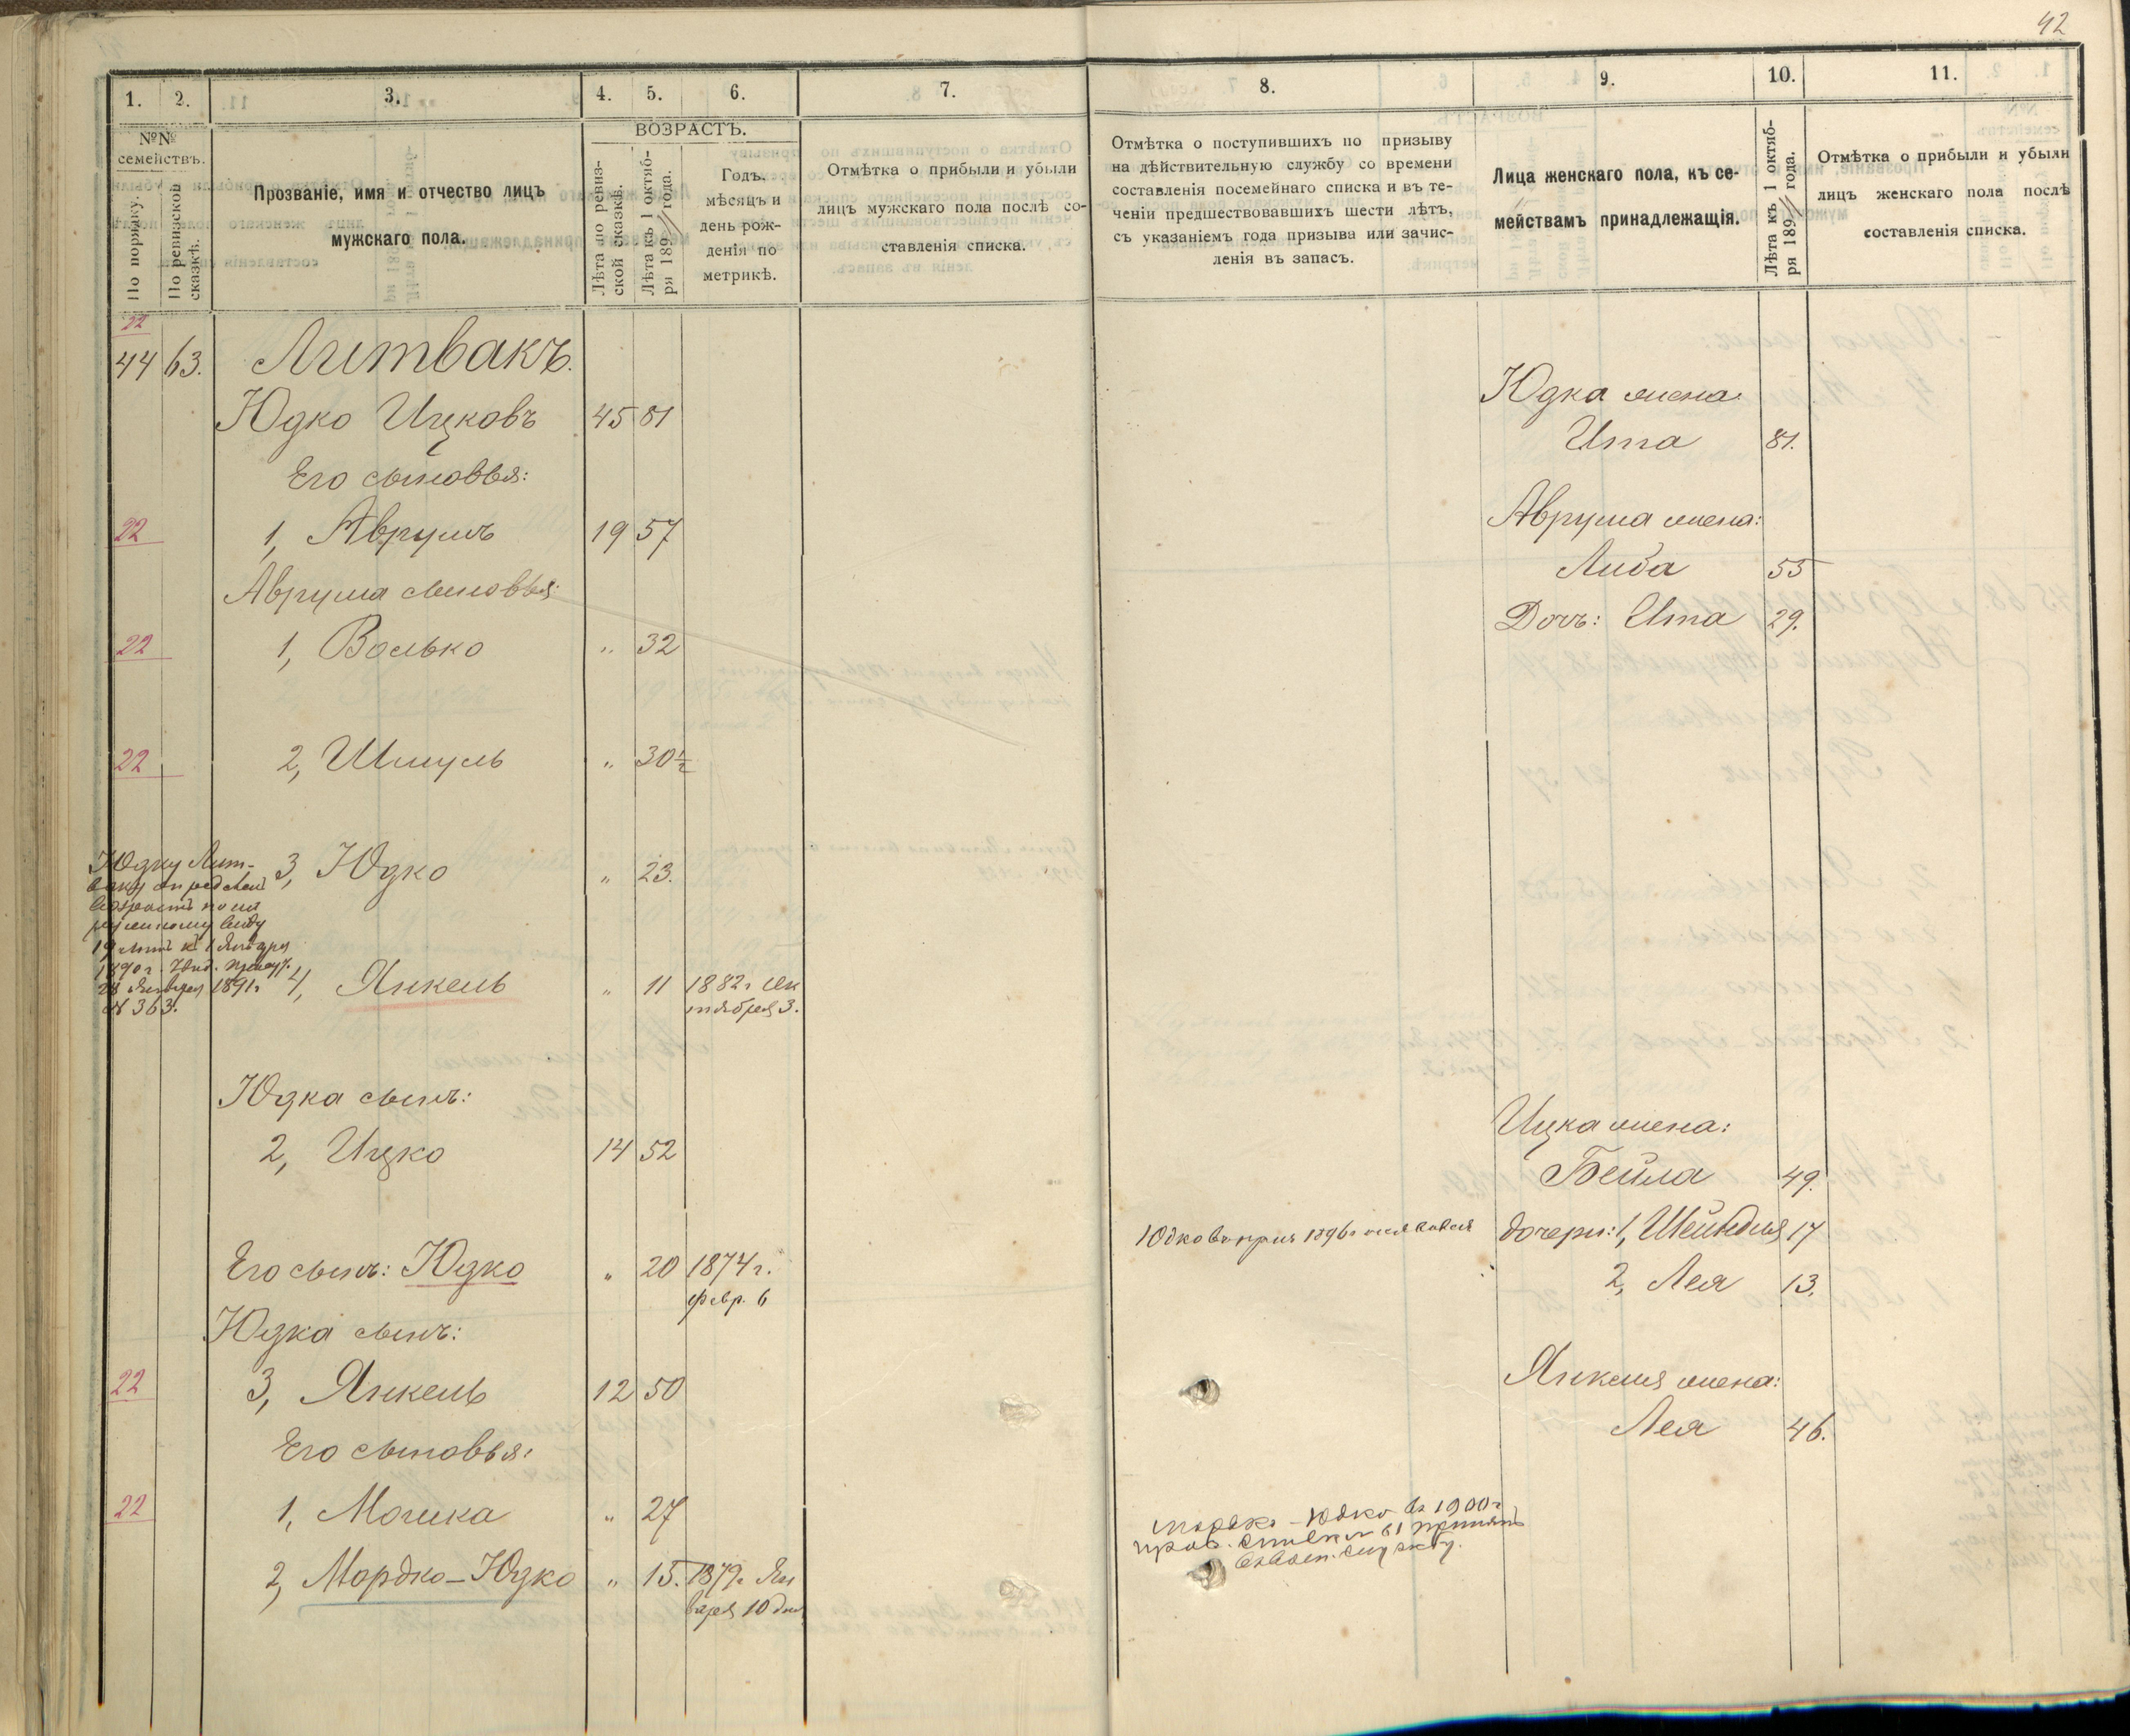 42
1. 2. 3. 4. 5. 6. 7. 8. 9. 10. 11.
№№ семействъ.
По порядку.
По ревизской сказкѣ.
Прозваніе, имя и отчество лицъ
мужскаго пола.
ВОЗРАСТЪ.
Лѣта по ревиз-
ской сказкѣ.
Лѣта къ 1 октяб-
ря 189 года.
Годъ,
мѣсяцъ и
день рож-
денія по
метрикѣ.
Отмѣтка о прибыли и убыли
лицъ мужскаго пола послѣ со-
ставленія списка.
Отмѣтка о поступившихъ по призыву
на дѣйствительную службу со времени
составленія посемейнаго списка и въ те-
ченіи предшествовавшихъ шести лѣтъ,
съ указаніемъ года призыва или зачис-
ленія въ запасъ.
Лица женскаго пола, къ се-
мействамъ принадлежащія.
Лѣта къ 1 октяб-
ря 189 года.
Отмѣтка о прибыли и убыли
лицъ женскаго пола послѣ
составленія списка.
22
44 63. Литвакъ.
Юдко Ицковъ 45 81
Юдка жена
Ита 81.
Его сыновья:
22 1, Аврумъ 19 57
Аврума жена:
Либа 55
Аврума сыновья:
Дочь: Ита 29.
22 1, Волько " 32
22 2, Шмуль " 30½
3, Юдко " 23.
Юдку Лит-
ваку опредѣленъ
возрастъ по на
ружному виду
19 лѣтъ къ 1 Января
1890 г.
28 Января 1891 г
№ 363.
4, Янкель " 11 1882 г Ок
тября 3.
Юдка сынъ:
2, Ицко 14 52
Ицка жена:
Бейла 49.
Юдко въ приз 1896 г
дочери: 1, Шейндля 17
Его сынъ: Юдко " 20 1874 г.
февр. 6
2, Лея 13.
Юдка сынъ:
22 3, Янкель 12 50
Янкеля жена:
Лея 46.
Его сыновья:
22 1, Мошка " 27
2, Мордко-Юдко " 15. 1879 г Ян
варя 10 дня
Мордко-Юдко въ 1900 г
61 принятъ
службу.